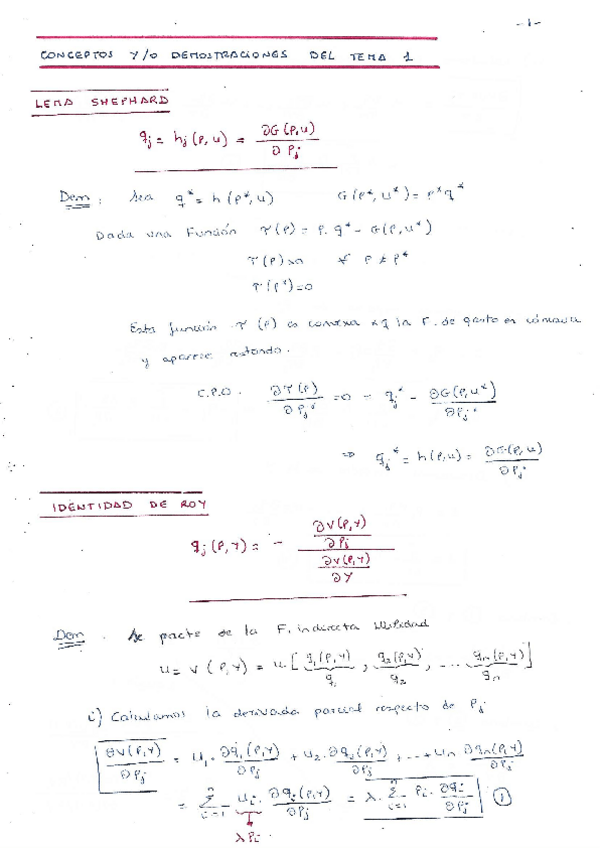 -1-
CONCEPTOS Y/O DEMOSTRACIONES DEL TEMA 1
LEMA SHEPHARD
q_j = h_j (P, u) = ∂G(P,u) / ∂P_j
Dem: Sea q* = h(P*, u) G(P*, u*) = P* q*
Dada una Función τ(P) = P. q* - G(P, u*)
τ(P) > 0 ∀ P ≠ P*
τ(P*) = 0
Esta función τ(P) es convexa xq la F. de gasto es cóncava
y aparece restando.
C.P.O. ∂τ(P) / ∂P_j = 0 = q_j* - ∂G(P,u*) / ∂P_j
⇒ q_j* = h(P,u) = ∂G(P,u) / ∂P_j
IDENTIDAD DE ROY
q_j (P, Y) = - (∂V(P,Y) / ∂P_j) / (∂V(P,Y) / ∂Y)
Dem. Se parte de la F. indirecta Utilidad
u = V (P, Y) = u [q_1(P,Y), q_2(P,Y), ... q_n(P,Y)]
q_1 q_2 q_n
i) Calculamos la derivada parcial respecto de P_j
∂V(P,Y) / ∂P_j = u_1 . ∂q_1(P,Y) / ∂P_j + u_2 . ∂q_2(P,Y) / ∂P_j + ... + u_n ∂q_n(P,Y) / ∂P_j
= Σ_{i=1}^n u_i . ∂q_i(P,Y) / ∂P_j = λ . Σ_{i=1}^n P_i . ∂q_i / ∂P_j ①
λP_i